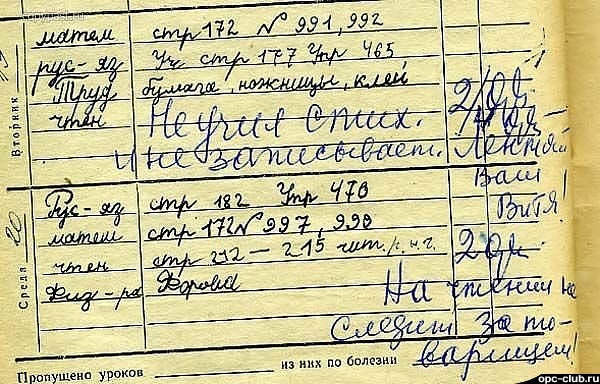 copypast.ru
Вторник
матем стр 172 № 991, 992
рус-яз Уч стр 177 Упр 465
Труд бумага, ножницы, клей
чтен Не учил стих. 2/дв.
и не записывает. Лентяй
Ваш
Витя!
Среда 20
Рус-яз стр 182 Упр 470
матем стр 172 № 997, 998
чтен стр 212 – 215 чит.
Физ-ра Форма
На чтении не
следит за то-
варищем!
Пропущено уроков из них по болезни
opc-club.ru